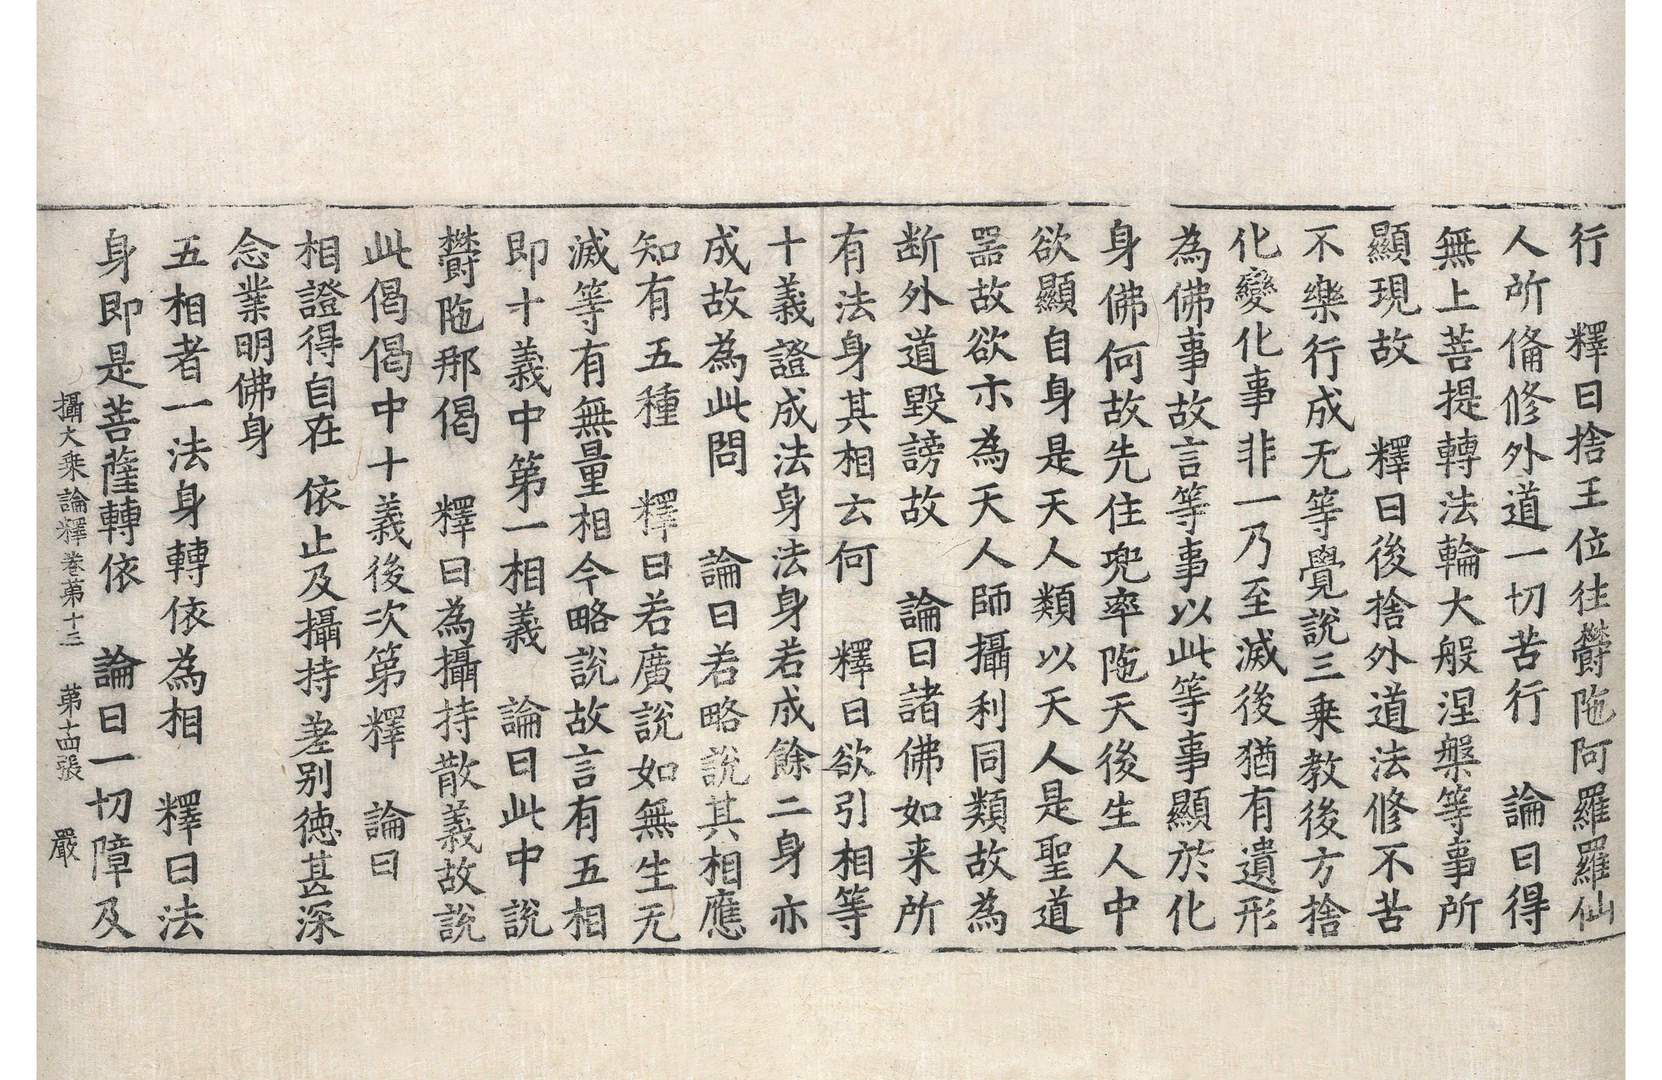 行　釋曰捨王位往欝陁阿羅羅仙
人所俻修外道一切苦行　論曰得
無上菩提轉法輪大般涅槃等事所
顯現故　釋曰後捨外道法修不苦
不樂行成无等覺說三乗教後方捨
化變化事非一乃至滅後猶有遺形
為佛事故言等事以此等事顯於化
身佛何故先住兜率陁天後生人中
欲顯自身是天人類以天人是聖道
噐故欲亦為天人師攝利同類故為
断外道毀謗故　論曰諸佛如来所
有法身其相云何　釋曰欲引相等
十義證成法身法身若成餘二身亦
成故為此問　論曰若略說其相應
知有五種　釋曰若廣說如無生无
滅等有無量相今略說故言有五相
即十義中第一相義　論曰此中說
欝陁那偈　釋曰為攝持散義故說
此偈偈中十義後次第釋　論曰
相證得自在　依止及攝持　差别德甚深
念業明佛身
五相者一法身轉依為相　釋曰法
身即是菩薩轉依　論曰一切障及
攝大乗論釋卷第十三　第十四張　嚴